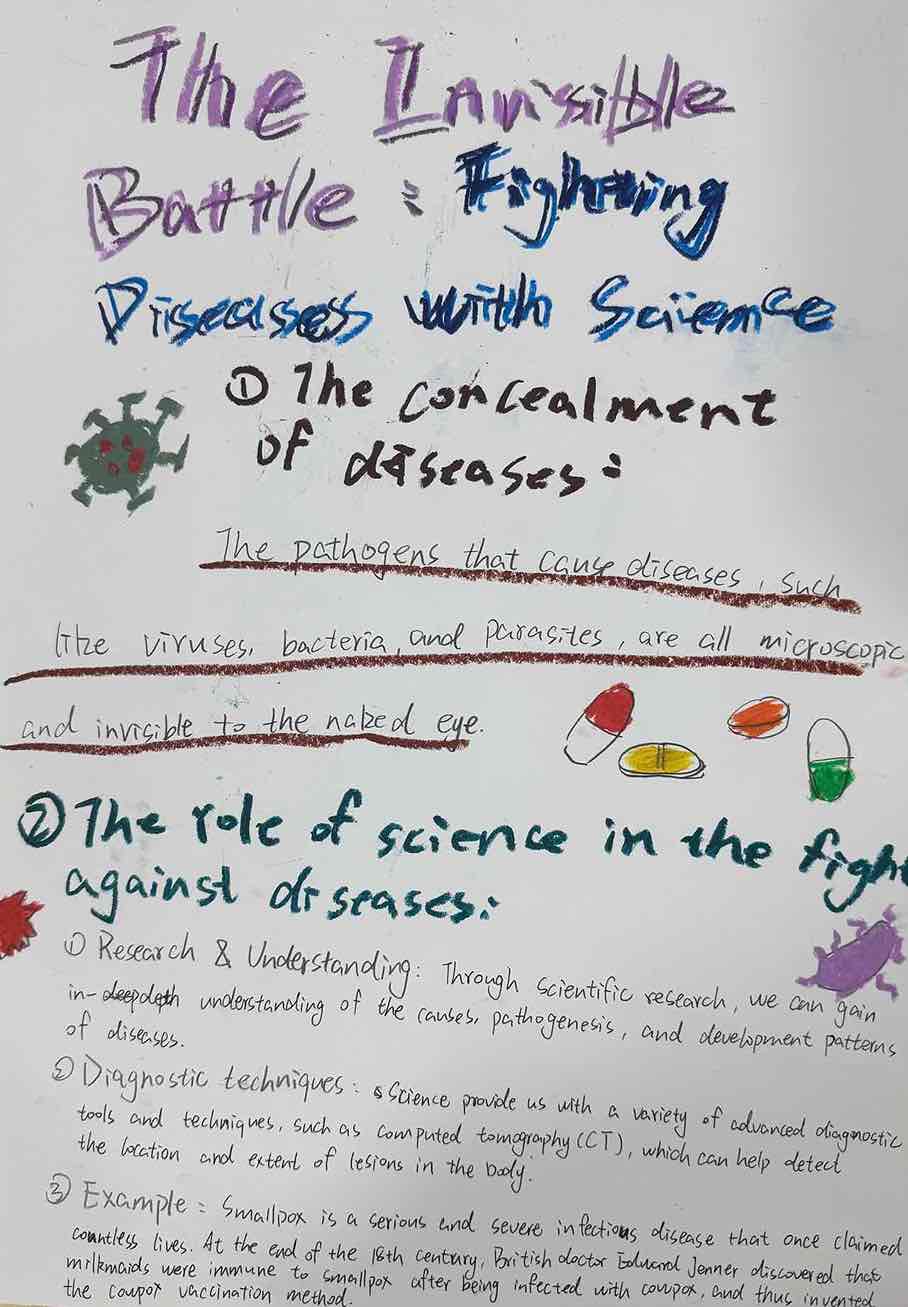 The Invisible
Battle : Fighting
Diseases with Science
① The concealment
of diseases:
The pathogens that cause diseases, such
like viruses, bacteria, and parasites, are all microscopic
and invisible to the naked eye.
② The role of science in the fight
against diseases:
① Research & Understanding: Through scientific research, we can gain
in-depth understanding of the causes, pathogenesis, and development patterns
of diseases.
② Diagnostic techniques: Science provide us with a variety of advanced diagnostic
tools and techniques, such as computed tomography (CT), which can help detect
the location and extent of lesions in the body.
③ Example: Smallpox is a serious and severe infectious disease that once claimed
countless lives. At the end of the 18th century, British doctor Edward Jenner discovered that
milkmaids were immune to smallpox after being infected with cowpox, and thus invented
the cowpox vaccination method.